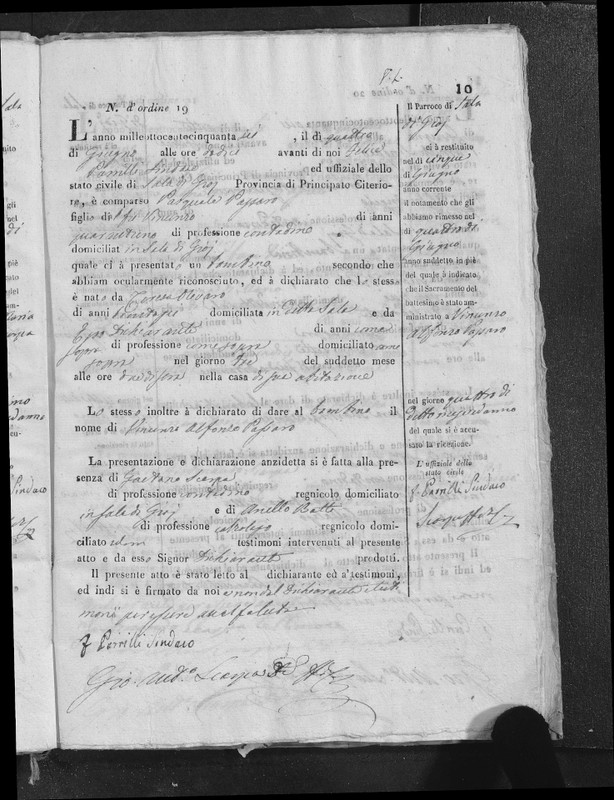 10
N. d'ordine 19
L'anno milleottocentocinquanta sei, il di quattro
di Giugno alle ore avanti di noi Felice
Parrilli Sindaco ed uffiziale dello
stato civile di Sala di Gioj Provincia di Principato Citerio-
re, è comparso Pasquale Passaro
figlio del fu Vincenzo di anni
di professione contadino
domiciliat in Sala di Gioj
quale ci à presentato un bambino secondo che
abbiam ocularmente riconosciuto, ed à dichiarato che lo stesso
è nato da Teresa
di anni domiciliata in detta Sala e da
Esso dichiarante di anni come
sopra di professione come sopra domiciliato come
sopra nel giorno tre del suddetto mese
alle ore nella casa di sua abitazione
Lo stesso inoltre à dichiarato di dare al bambino il
nome di Vincenzo Alfonso Passaro
La presentazione e dichiarazione anzidetta si è fatta alla pre-
senza di Gaetano Scarpa
di professione contadino regnicolo domiciliato
in Sala di Gioj e di Aniello Batti
di professione regnicolo domi-
ciliato idem testimoni intervenuti al presente
atto e da esso Signor dichiarante prodotti.
Il presente atto è stato letto al dichiarante ed a' testimoni,
ed indi si è firmato da noi e non dal dichiarante e testi
monj per essere analfabeti
F Parrilli Sindaco
Gio: And.a Scarpa
Il Parroco di Sala
di Gioj
ci à restituito
nel dì cinque
di Giugno
anno corrente
il notamento che gli
abbiamo rimesso nel
dì quattro di
Giugno
anno suddetto in piè
del quale à indicato
che il Sacramento del
battesimo è stato am-
ministrato a Vincenzo
Alfonso Passaro
nel giorno quattro di
detto mese ed anno
del quale si è accu-
sato la ricezione.
L'uffiziale dello
stato civile
F Parrilli Sindaco
Scarpa